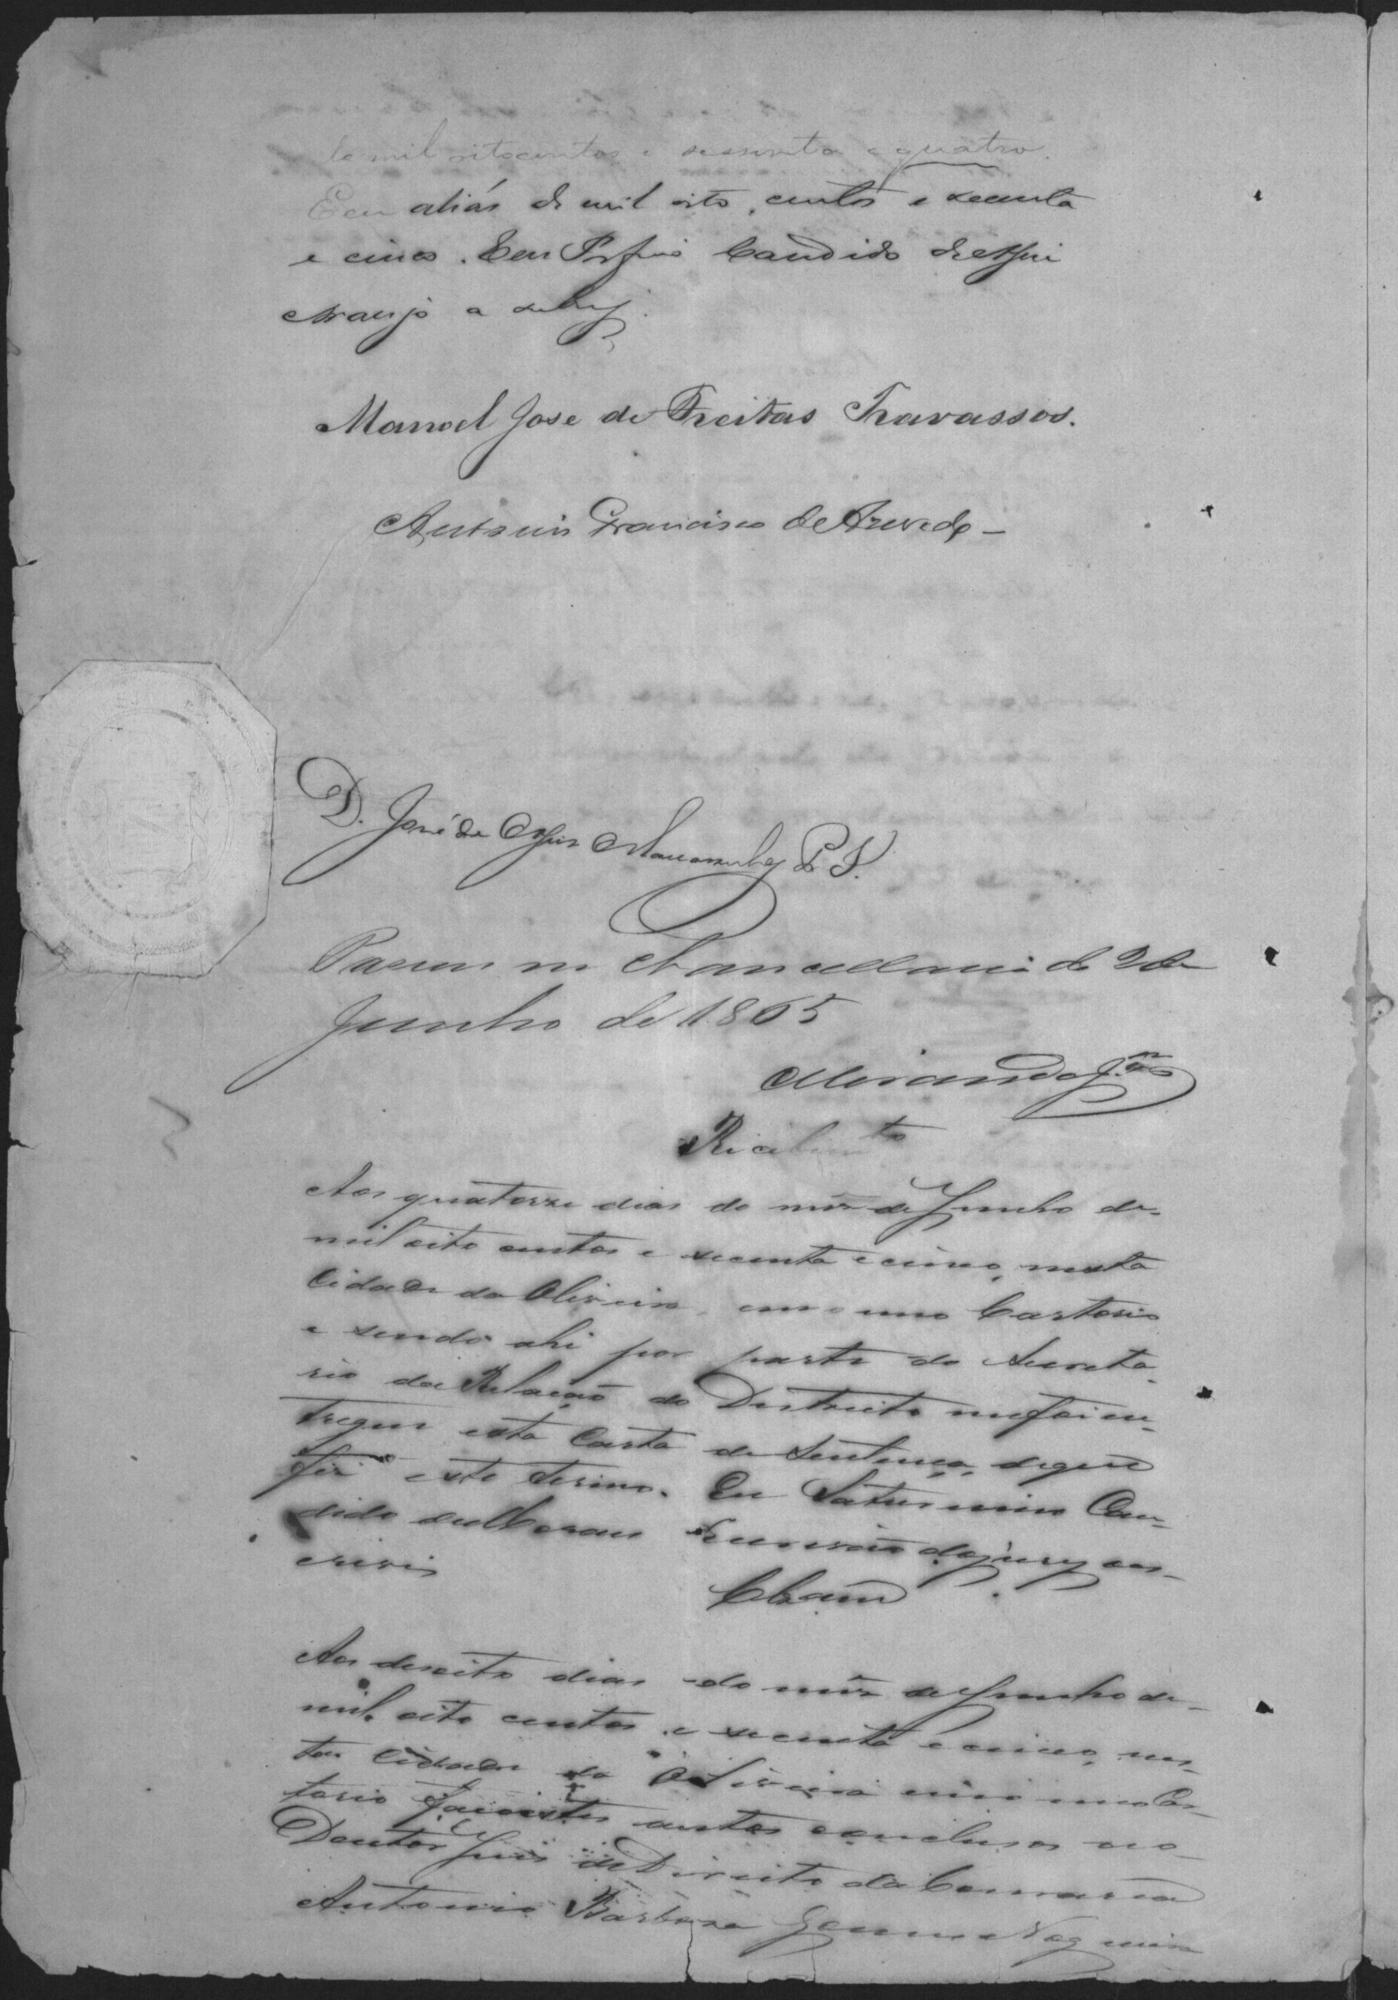 de mil oitocentos e sessenta e quatro.
Eeu aliás de mil oito centos e secenta
e cinco. Eeu Porfirio Candido de Assis
Araujo a subscrevy.
Manoel Jose de Freitas Travassos.
Antonio Francisco de Azevedo
D. José de Assis Mascarenhas P. I.
Passou na Chancellaria de 2 de
Junho de 1865
Miranda J.or
Recebimento
Aos quatorze dias do mez de Junho de
mil oito centos e secenta e cinco, nesta
Cidade da Oliveira, em o meo Cartorio
e sendo ahi por parte do Secreta-
rio da Relação do Districto me foi en-
tregue esta Carta de Sentença, de que
fiz este termo. Eu Saturnino Can-
dido Escrivão do jury es-
crivi
Clzam
Aos desoito dias do mez de Junho de
mil oito centos e secenta e cinco, nes-
ta Cidade da Oliveira em o meo Car-
torio faço estes autos conclusos ao
Doutor Juis de Direito da Comarca
Antonio Barboza Gomes Nogueira